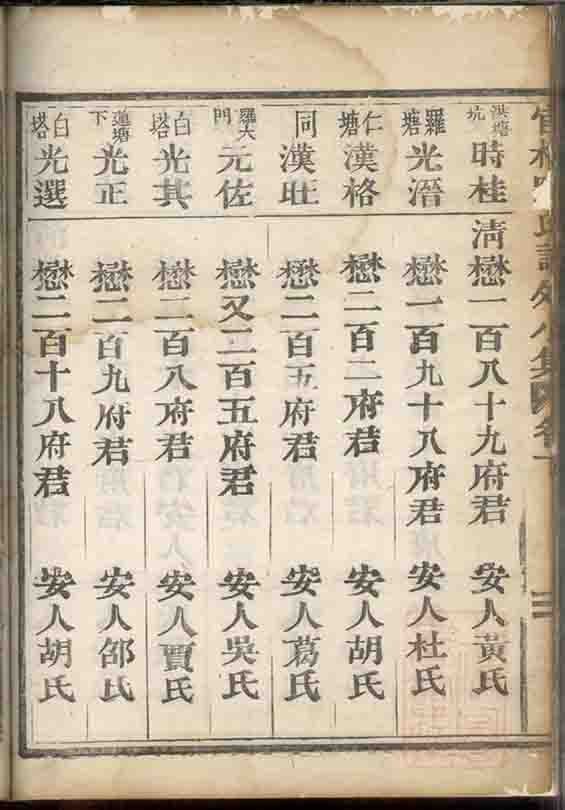 洪塘坑 時桂 淸 懋一百八十九府君 安人黃氏
羅塘 光濬 懋一百九十八府君 安人杜氏
仁塘 漢格 懋二百二府君 安人胡氏
同 漢旺 懋二百五府君 安人葛氏
羅大門 元佐 懋又二百五府君 安人吳氏
白塔 光其 懋二百八府君 安人賈氏
蓮塘下 光正 懋二百九府君 安人郤氏
白塔 光選 懋二百十八府君 安人胡氏